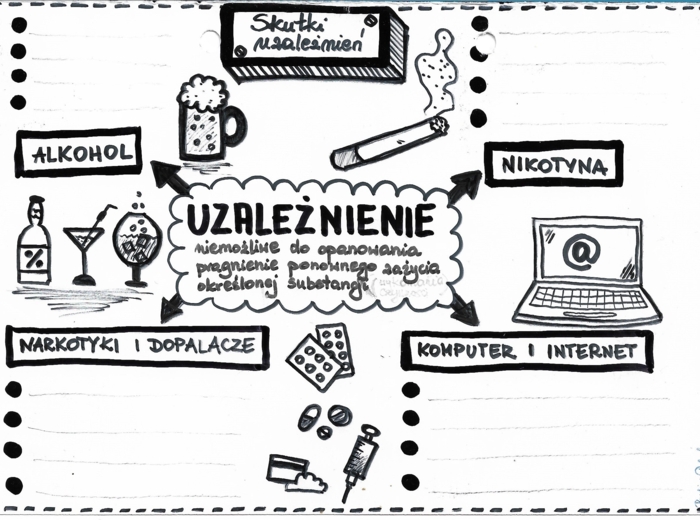 Skutki
uzależnień
ALKOHOL
NIKOTYNA
UZALEŻNIENIE
niemożliwe do opanowania
pragnienie ponownego zażycia
określonej substancji
%
@
NARKOTYKI I DOPALACZE
KOMPUTER I INTERNET